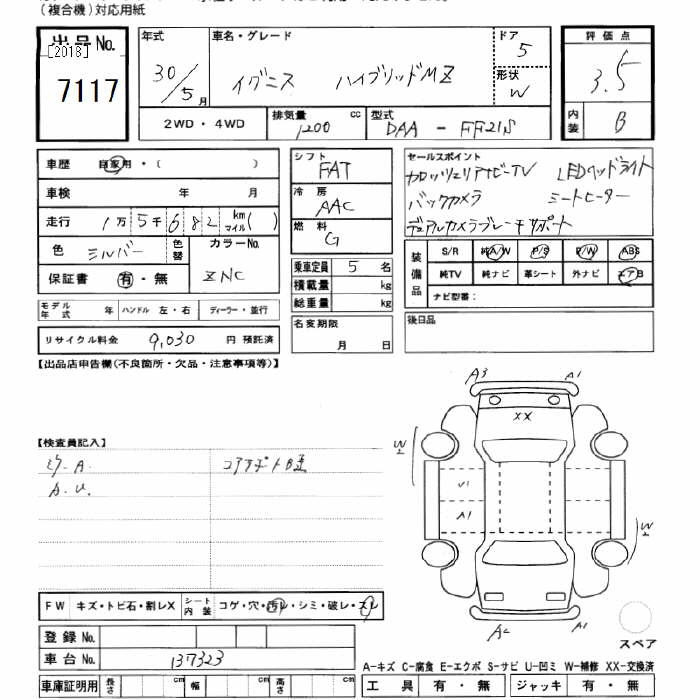 (複合機)対応用紙
出品No.
[2018]
7117
年式
30/5月
車名・グレード
イグニス ハイブリッドMZ
ドア
5
形状
W
評価点
3.5
内装
B
2WD・4WD
排気量
1200 cc
型式
DAA - FF21S
車歴 自家用・( )
車検 年 月
走行 1万5千682 km マイル( )
色 シルバー 色替
カラーNo.
ZNC
保証書 有・無
モデル年式 年 ハンドル 左・右 ディーラー・並行
リサイクル料金 9,030 円 預託済
シフト
FAT
冷房
AAC
燃料
G
乗車定員 5 名
積載量 kg
総重量 kg
名変期限
月 日
セールスポイント
カロッツェリアナビ-TV LEDヘッドライト
バックカメラ シートヒーター
デュアルカメラブレーキサポート
装備品
S/R 純A/W P/S P/W ABS
純TV 純ナビ 革シート 外ナビ エアB
ナビ型番:
後日品
【出品店申告欄(不良箇所・欠品・注意事項等)】
【検査員記入】
A.U.
A3 A1
XX
W
U1
A1
W
A2 A1
スペア
FW キズ・トビ石・割レX シート内装 コゲ・穴・汚レ・シミ・破レ・スレ
登録No.
車台No. 137323
A-キズ C-腐食 E-エクボ S-サビ U-凹ミ W-補修 XX-交換済
車庫証明用 長さ cm 幅 cm 高さ cm
工具 有・無 ジャッキ 有・無